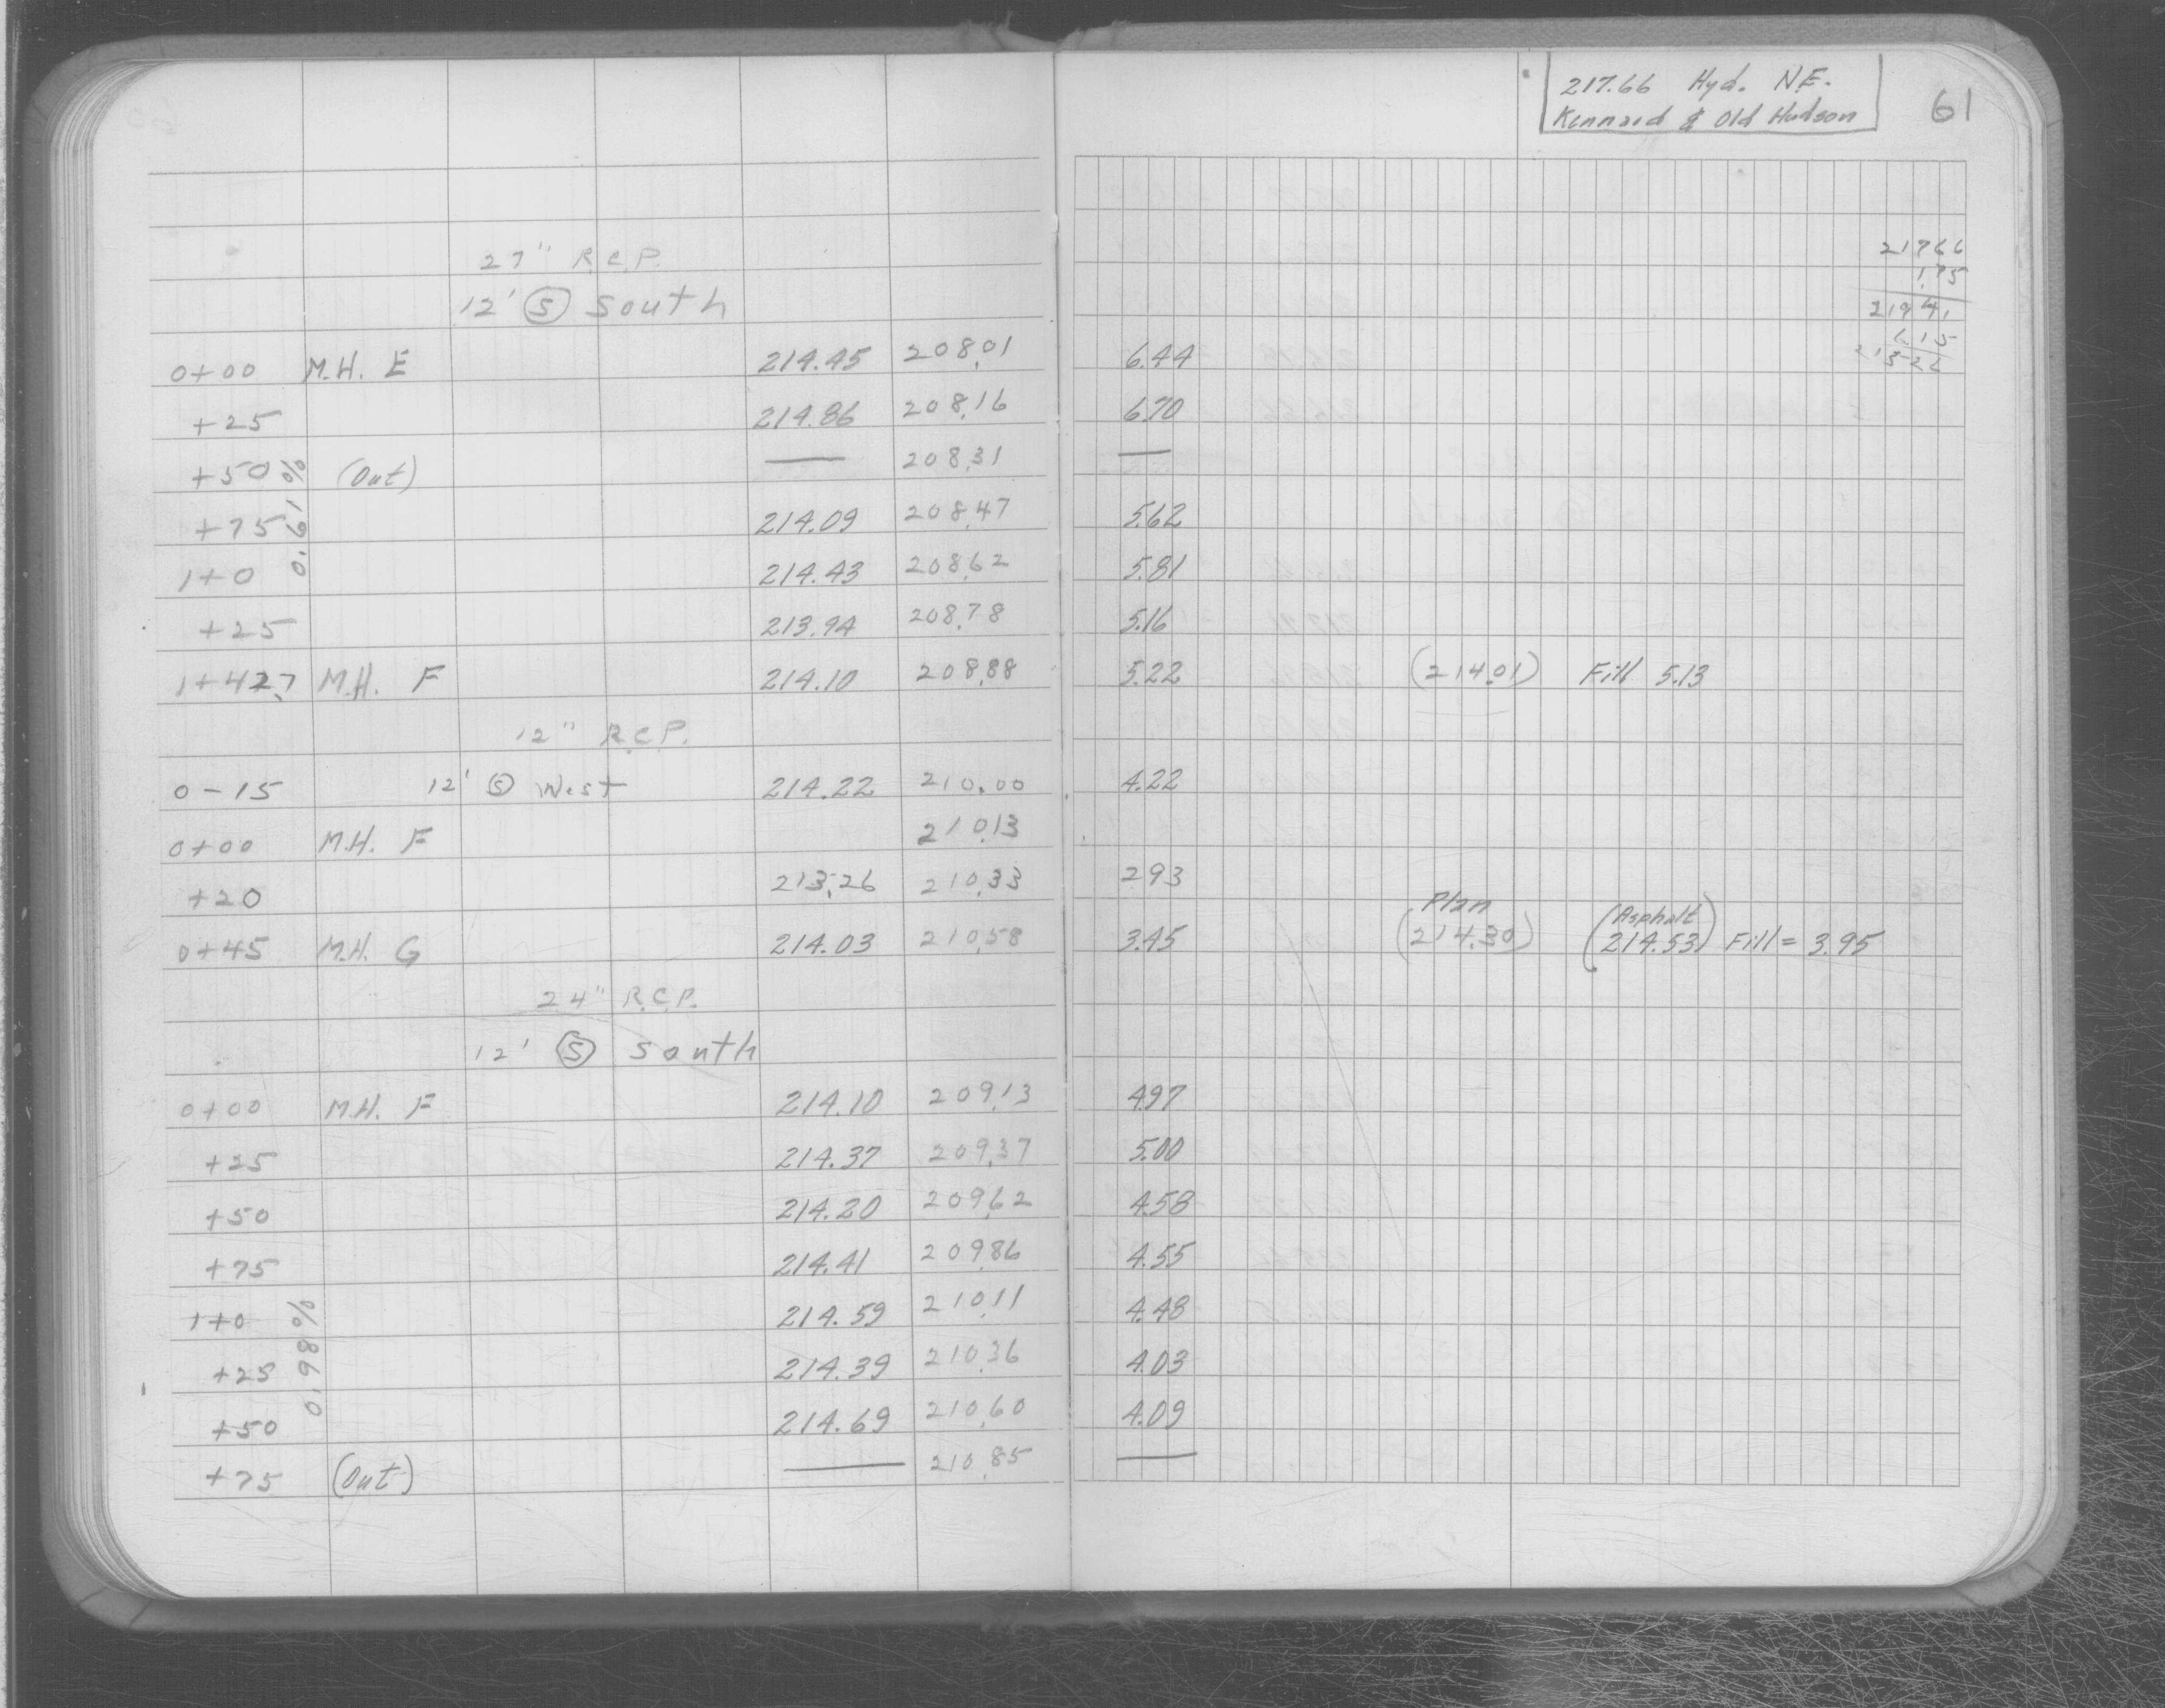 217.66 Hyd. N.E.
Kennard & Old Hudson
61
27" R.C.P.
12' Ⓢ South
217.66
1.75
219.41
6.15
213.26
0+00 M.H. E 214.45 208.01 6.44
+25 214.86 208.16 6.70
+50 (Out) — 208.31 —
+75 214.09 208.47 5.62
1+0 214.43 208.62 5.81
+25 213.94 208.78 5.16
0.61%
1+42.7 M.H. F 214.10 208.88 5.22 (214.01) Fill 5.13
12" R.C.P.
0-15 12' Ⓢ West 214.22 210.00 4.22
0+00 M.H. F 210.13
+20 213.26 210.33 2.93
Plan (Asphalt)
0+45 M.H. G 214.03 210.58 3.45 (214.30) 214.53) Fill = 3.95
24" R.C.P.
12' Ⓢ South
0+00 M.H. F 214.10 209.13 4.97
+25 214.37 209.37 5.00
+50 214.20 209.62 4.58
+75 214.41 209.86 4.55
1+0 214.59 210.11 4.48
+25 214.39 210.36 4.03
+50 214.69 210.60 4.09
0.98%
+75 (Out) — 210.85 —